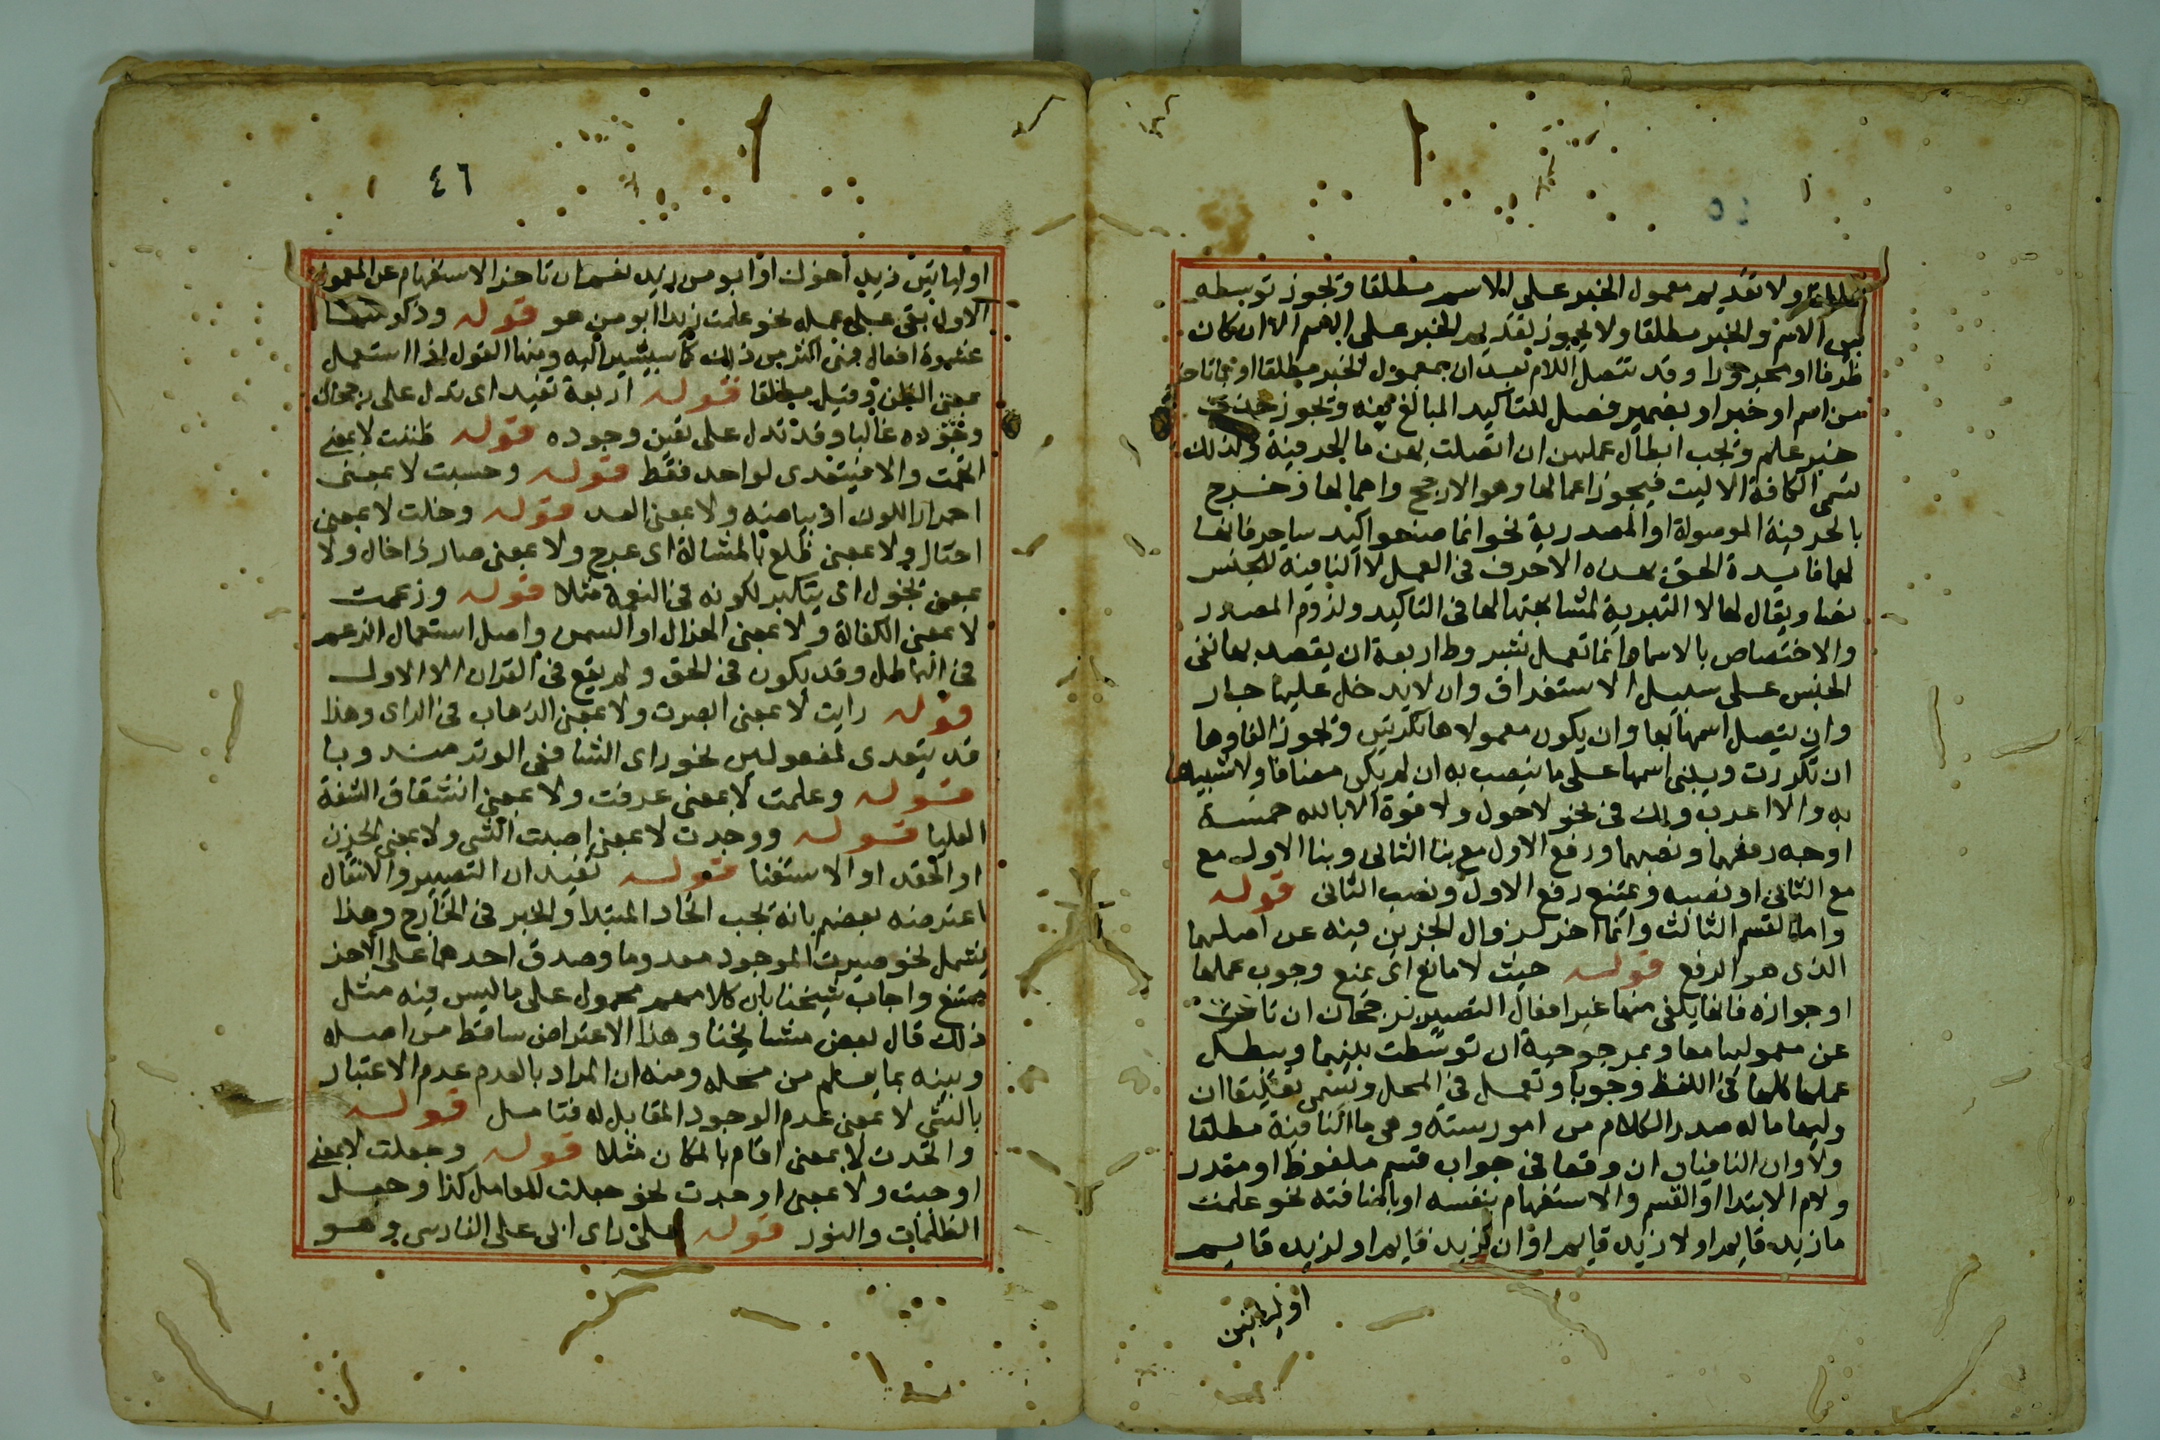 ولا تقديم معمول الخبر على الاسم مطلقا ويجوز توسطه
بين الاسم والخبر مطلقا ولا يجوز تقديم الخبر على الاسم الا ان كان
ظرفا او مجرورا وقد تتصل اللام بعد ان بمعمول الخبر مطلقا او بما تاخر
من اسم او خبر او بضمير فصل للتاكيد المبالغ فيه ويجوز حذف
خبر علم ويجب ابطال عملهن ان اتصلت بهن ما الحرفية ولذلك
تسمى الكافة الا ليت فيجوز اعمالها وهو الارجح واهمالها وخرج
بالحرفية الموصولة او المصدرية نحو انما صنعوا كيد ساحر فانها
لها فايدة الحق بهذه الاحرف في العمل لا النافية للجنس
نصا ويقال لها لا التبرية لمشابهتها لها في التاكيد ولزوم المصدر
والاختصاص بالاسما وانما تعمل بشروط اربعة ان يقصد بها نفى
الجنس على سبيل الاستغراق وان لا يدخل عليها جار
وان يتصل اسمها بها وان يكون معمولاها نكرتين ويجوز الغاوها
ان تكررت ويبنى اسمها على ما ينصب به ان لم يكن مضافا ولا شبيها
به والا اعرب ولك في نحو لا حول ولا قوة الا بالله خمسة
اوجه رفعهما ونصبهما ورفع الاول مع بنا الثانى وبنا الاول مع
مع الثانى او نصبه ويمتنع رفع الاول ونصب الثانى قوله
واما القسم الثالث وانما اخر لزوال الجزين فيه عن اصلهما
الذى هو الرفع قوله حيث لا مانع اى يمنع وجوب عملها
او جوازه فانها يلغى منها غير افعال التصيير برجحان ان تاخرت
عن معموليها معا وبمرجوحية ان توسطت بينهما ويبطل
عملها كلها في اللفظ وجوبا وتعمل في المحل ويسمى تعليقا ان
وليها ما له صدر الكلام من امور ستة وهي ما النافية مطلقا
ولا وان النافيتان ان وقعا في جواب قسم ملفوظ او مقدر
ولام الابتدا او القسم والاستفهام بنفسه او باضافته نحو علمت
ما زيد قايم او لا زيد قايم او ان زيد قايم او لزيد قايم
٤٦
او ليهاتين زيد اخوك او ابو من زيد نعم ان تاخر الاستفهام عن المعمول
الاول بقى على عمله نحو علمت زيدا ابو من هو قوله وذكر منها
عشرة افعال فهى اكثر من ذلك كما سيشير اليه ومنها القول اذا استعمل
بمعنى الظن وقيل مطلقا قوله اربعة تفيد اى تدل على رجحان
وقوعه غالبا وقد تدل على تعين وجوده قوله ظننت لا بمعنى
اتهمت والا فيتعدى لواحد فقط قوله وحسبت لا بمعنى
احمرار اللون او بياضه ولا بمعنى العد قوله وخلت لا بمعنى
احتال ولا بمعنى ظلع بالمشالة اى عرج ولا بمعنى صار ذا خال ولا
بمعنى تخول اى يتكبر لكونه في النعمة مثلا قوله وزعمت
لا بمعنى الكفالة ولا بمعنى الهزال او السمن واصل استعمال الزعم
في الباطل وقد يكون في الحق ولم يقع في القران الا الاول
قوله رايت لا بمعنى ابصرت ولا بمعنى الذهاب في الراى وهذا
قد يتعدى لمفعولين نحو راى الشافعى الوتر مندوبا
قوله وعلمت لا بمعنى عرفت ولا بمعنى انشقاق الشفة
العليا قوله ووجدت لا بمعنى اصبت الشى ولا بمعنى الحزن
او الحقد او الاستغنا قوله تفيد ان التصيير والانتقال
اعترضه بعضهم بانه يجب اتحاد المبتدا والخبر في الخارج وهذا
يشمل نحو صيرت الموجود معدوما وصدق احدهما على الاخر
ممتنع واجاب شيخنا بان كلامهم محمول على ما ليس فيه مثل
ذلك قال بعض مشايخنا وهذا الاعتراض ساقط من اصله
وبينه بما يعلم من محله ومنه ان المراد بالعدم عدم الاعتبار
بالشى لا بمعنى عدم الوجود المقابل له فتامل قوله
واتخذت لا بمعنى اقام بالمكان مثلا قوله وجعلت لا بمعنى
اوجبت ولا بمعنى اوجدت نحو جعلت للعامل كذا وجعل
الظلمات والنور قوله على راى ابى على الفارسى وهو
او ليهاتين